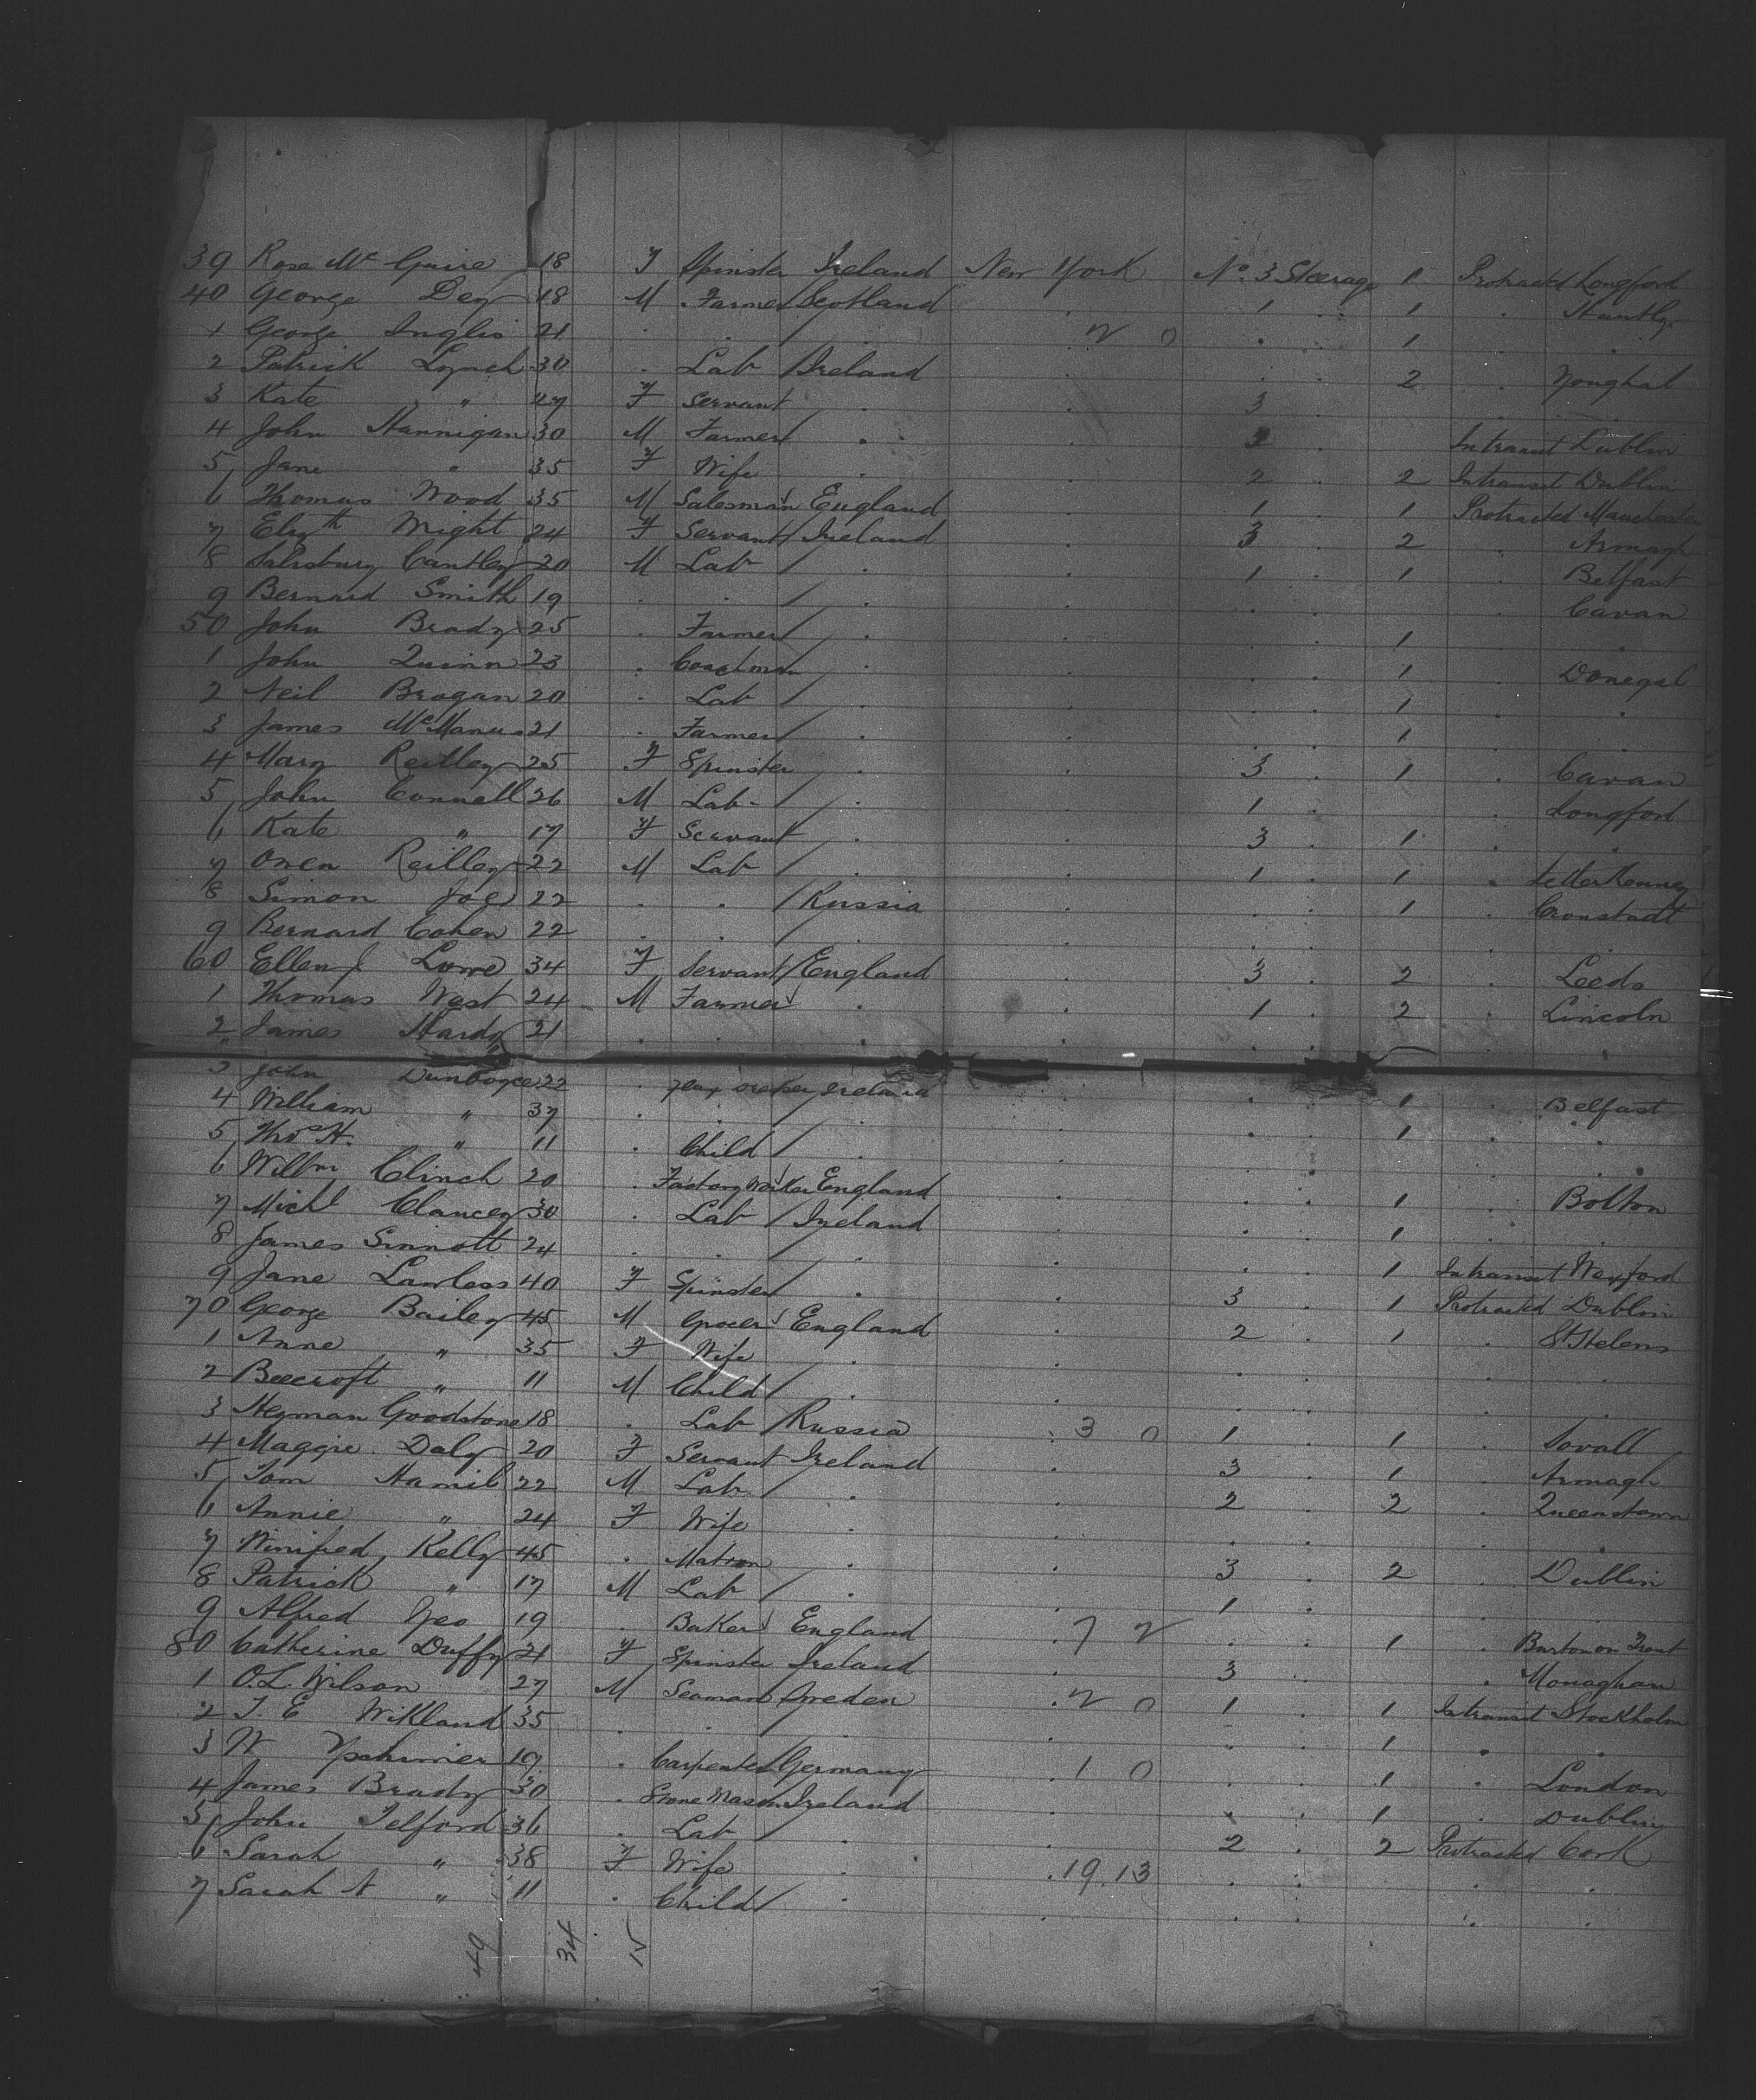 39 Rose Mc Guire 18 F Spinster Ireland New York No. 3 Steerage 1 Protracted Longford
40 George Dey 18 M Farmer Scotland . 1 . 1 . Huntly
1 George Inglis 21 . . . 2 0 . . 1 . .
2 Patrick Lynch 30 . Lab Ireland . . . 2 . Youghal
3 Kate " 27 F Servant . . 3 .
4 John Hannigan 30 M Farmer . . . Intransit Dublin
5 Jane " 35 F Wife . 2 . 2 Intransit Dublin
6 Thomas Wood 35 M Salesman England . 1 . 1 Protracted Manchester
7 Elizth Wright 24 F Servant Ireland . 3 . 2 . Armagh
8 Salisbury Cantley 20 M Lab . . 1 . 1 . Belfast
9 Bernard Smith 19 . . . . . Cavan
50 John Brady 25 . Farmer . . . . 1 . .
1 John Quinn 23 . Coachman . . . . 1 . Donegal
2 Neil Brogan 20 . Lab . . . . 1 . .
3 James McManus 21 . Farmer . . . . 1 . .
4 Mary Reilley 25 F Spinster . . 3 . 1 . Cavan
5 John Connell 26 M Lab . . 1 . . Longford
6 Kate " 17 F Servant . . 3 . 1 . .
7 Owen Reilley 22 M Lab . . 1 . 1 . Letterkenney
8 Simon Joe 22 . . Russia . . . 1 . Cronstadt
9 Bernard Cohen 22 . . . . . . . .
60 Ellen J Lowe 34 F Servant England . 3 . 2 . Leeds
1 Thomas West 24 M Farmer . . 1 . 2 . Lincoln
2 James Hardy 21 . . . . . . . .
3 John 22 . Ireland . . 1 . Belfast
4 William " 37 . . . . . 1 . .
5 Thos H. " 11 . Child . . . . .
6 Willm Clinch 20 . Factory Worker England . . 1 . Bolton
7 Michl Clancey 30 . Lab Ireland . . 1 . .
8 James Sinnott 24 . . . . . 1 Intransit Wexford
9 Jane Lawless 40 F Spinster . . 3 . 1 Protracted Dublin
70 George Bailey 45 M Grocer England . 2 . 1 . St Helens
1 Anne " 35 F Wife . . . . . .
2 Beecroft " 11 M Child . . . . . .
3 Heyman Goodstone 18 . Lab Russia . 3 0 1 . 1 . Sovall
4 Maggie Daly 20 F Servant Ireland . 3 . 1 . Armagh
5 Tom Hamil 22 M Lab . . 2 . 2 . Queenstown
6 Annie " 24 F Wife . . . . . .
7 Winifred Kelly 45 . Matron . . 3 . 2 . Dublin
8 Patrick " 17 M Lab . . 1 . . .
9 Alfred Yeo 19 . Baker England . 7 2 . . 1 . Burton on Trent
80 Catherine Duffy 21 F Spinster Ireland . 3 . . Monaghan
1 O.L. Wilson 27 M Seaman Sweden . 2 0 1 . 1 Intransit Stockholm
2 J. E Wikland 35 . . . . . 1 . .
3 W 19 . Carpenter Germany . 1 0 . . 1 . London
4 James Brady 30 . Stone Mason Ireland . . . 1 . Dublin
5 John Telford 36 . Lab . . 2 . 2 Protracted Cork
6 Sarah " 38 F Wife . . 19.13 . . . .
7 Sarah A " 11 . Child . . . . . .
49 34 15